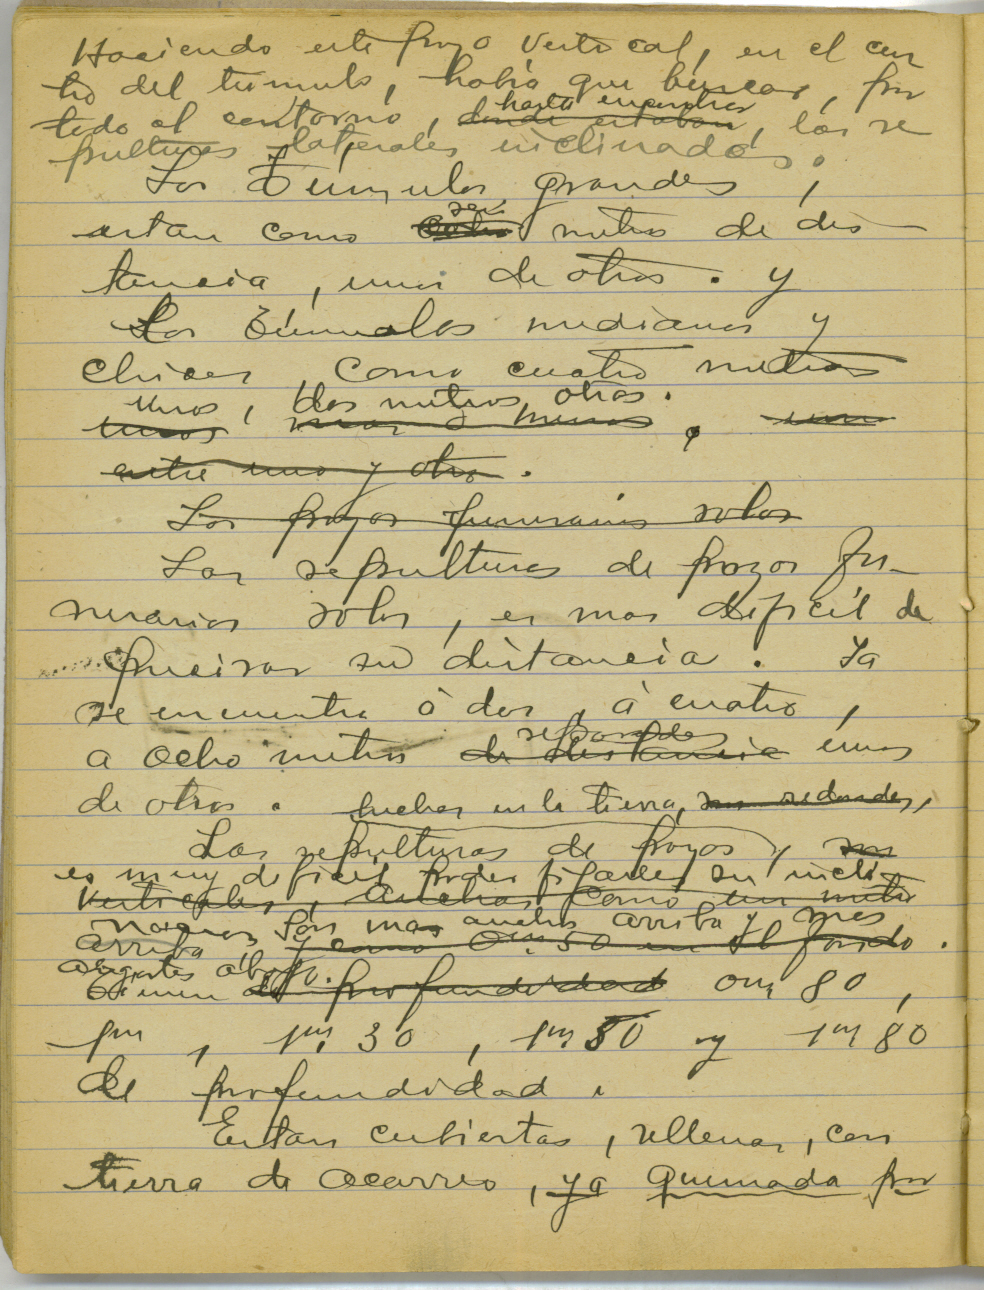 Haciendo este pozo vertical, en el cen
tro del túmulo, había que buscar, por
hasta encontrar
todo el contorno, donde estaban, las se
pulturas laterales inclinadas.
Los Túmulos grandes,
seis
estan como ocho metros de dis-
tancia, unos de otros. y
Los Túmulos medianos y
chicos, como cuatro metros
unos, dos metros otros.
unos mas o menos,
entre uno y otro.
Los pozos funerarios solos
Las sepulturas de pozos fu-
nerarios solos, es mas dificil de
precisar su distancia. Ya
se encuentra ó dos, á cuatro,
separados
a ocho metros de distancia unos
de otros. hechas en la tierra, son redondas,
Las sepulturas de pozos y son
es muy dificil poder fijarles su incli-
verticales, anchos como un metro
Son mas anchas arriba y mas
arriba y como 0m,50 en el fondo.
abajo.
Tienen de profundidad 0m,80,
1m,30, 1m50 y 1m80
de profundidad.
Estan cubiertas, rellenas, con
tierra de acarreo, ya quemada por